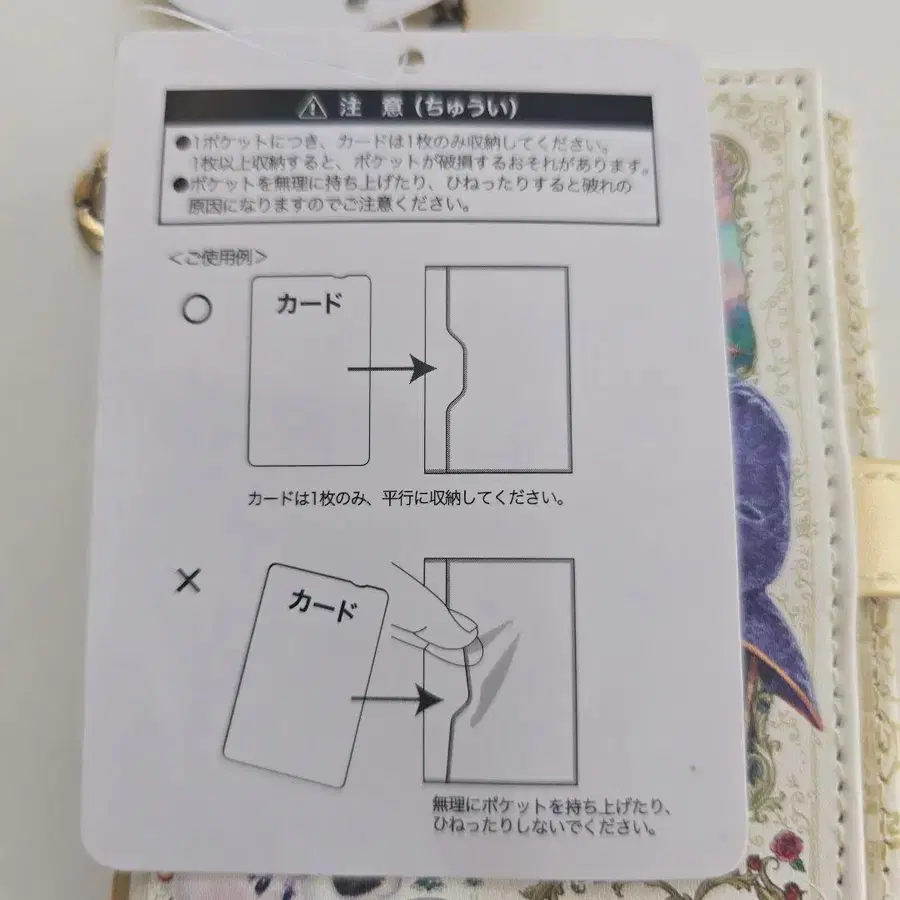 ⚠ 注 意 (ちゅうい)
●1ポケットにつき、カードは1枚のみ収納してください。
1枚以上収納すると、ポケットが破損するおそれがあります。
●ポケットを無理に持ち上げたり、ひねったりすると破れの
原因になりますのでご注意ください。
<ご使用例>
○
カード
カードは1枚のみ、平行に収納してください。
×
カード
無理にポケットを持ち上げたり、
ひねったりしないでください。